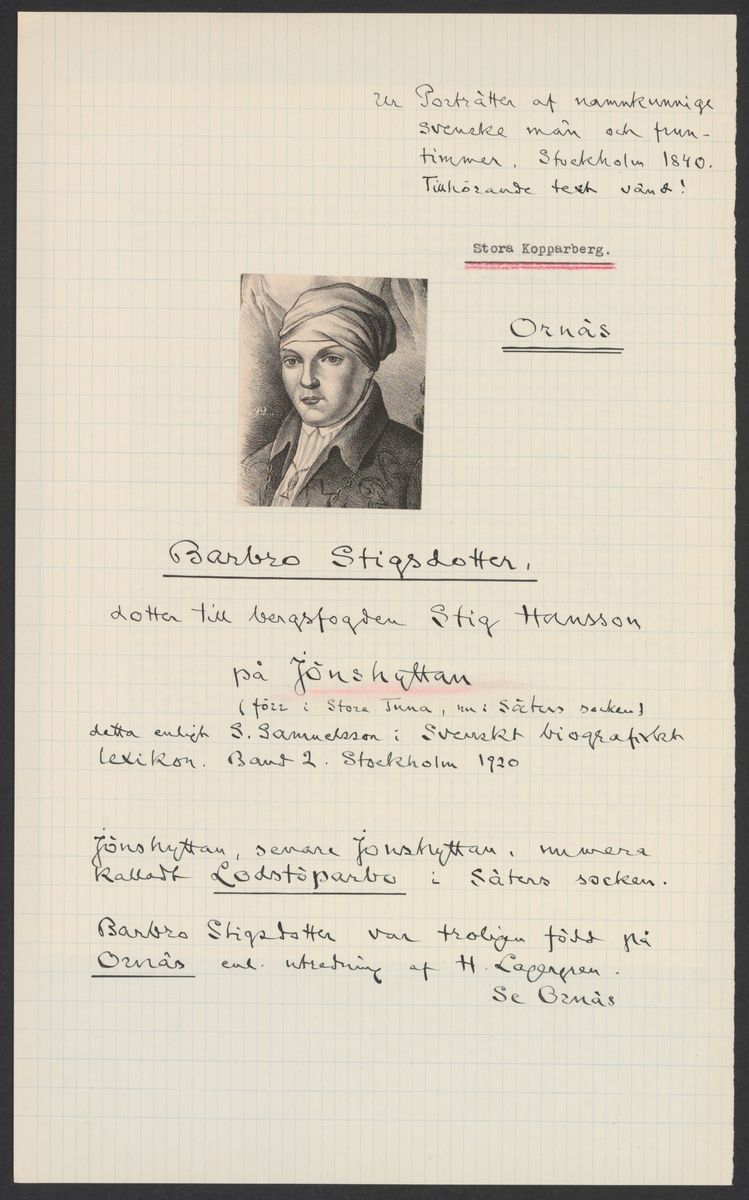 ur Porträtter af namnkunnige
svenske män och frun-
timmer. Stockholm 1840.
Tillhörande text vänd!
Stora Kopparberg.
Ornäs
Barbro Stigsdotter,
dotter till bergsfogden Stig Hansson
på Jönshyttan
(förr i Stora Tuna, nu i Säters socken)
detta enligt S. Samuelsson i Svenskt biografiskt
lexikon. Band 2. Stockholm 1920
Jönshyttan, senare Jonshyttan, numera
kalladt Lodstöparbo i Säters socken.
Barbro Stigsdotter var troligen född på
Ornäs enl. utredning af H. Lagergren.
Se Ornäs